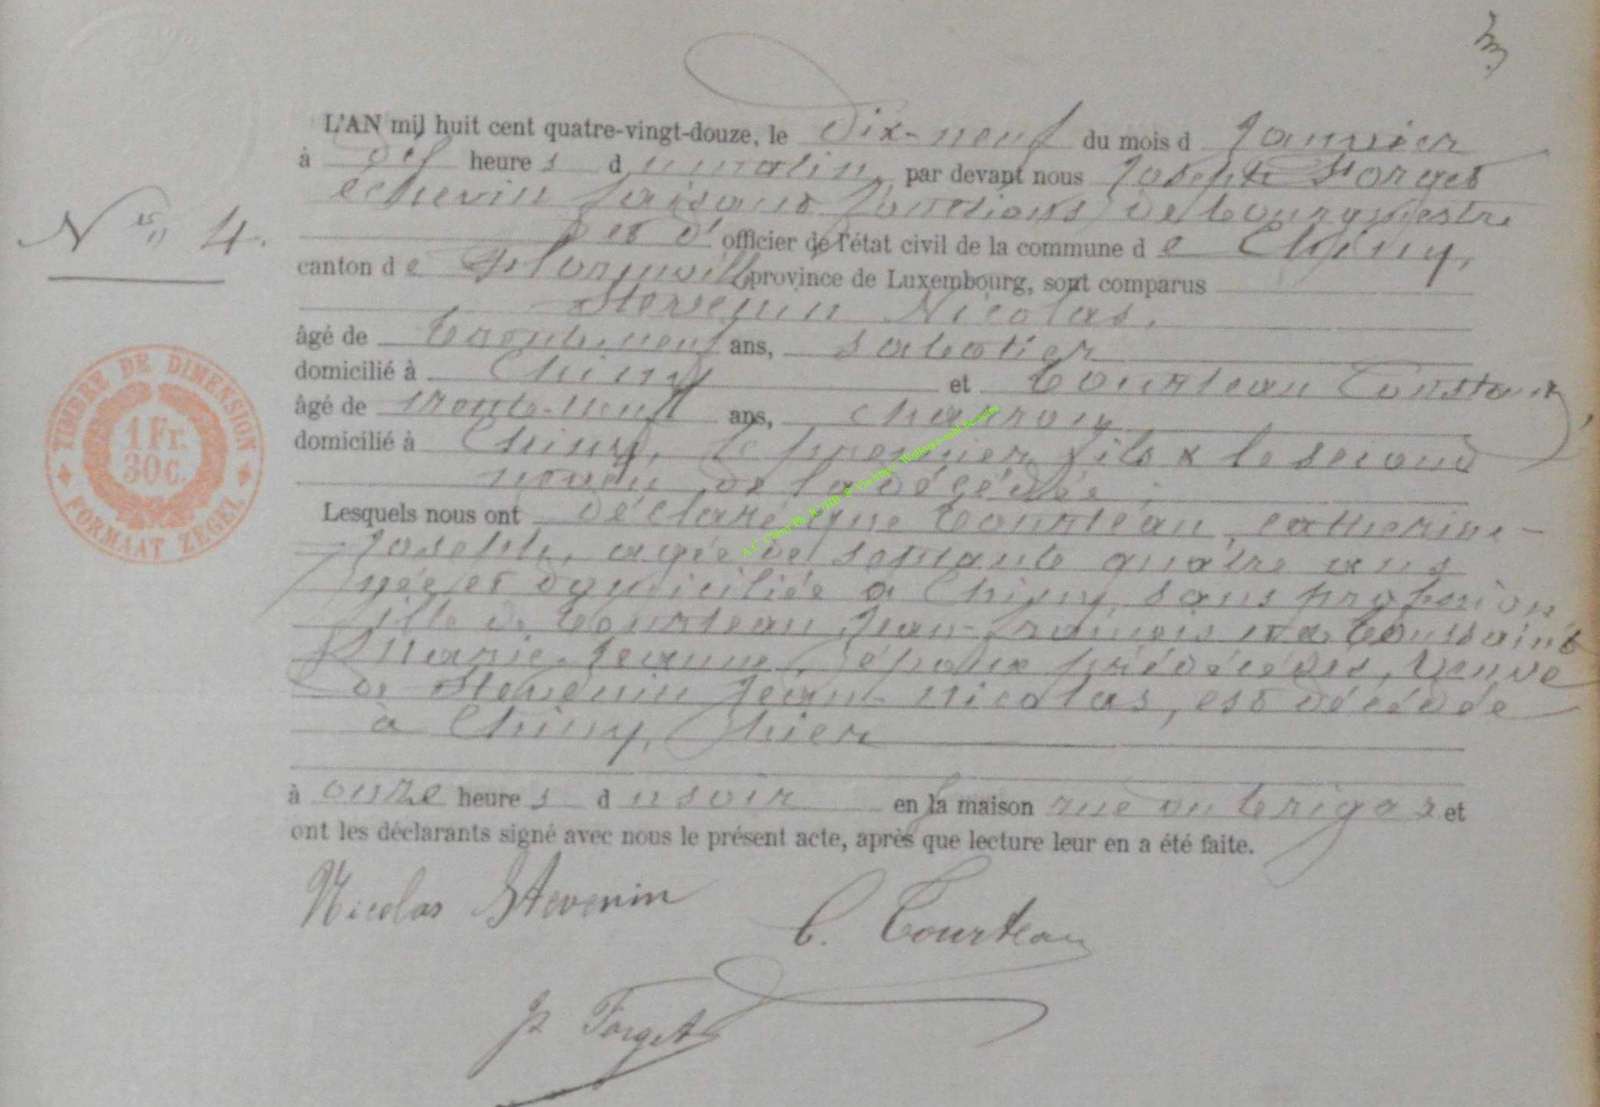 3
L'AN mil huit cent quatre-vingt-douze, le dix-neuf du mois d Janvier
à dix heures du matin, par devant nous Joseph Forget
échevin faisant fonctions de bourgmestre
et d'officier de l'état civil de la commune de Chiny,
N° 4.
canton de Florenville province de Luxembourg, sont comparus
Stevenin Nicolas,
âgé de trente-neuf ans, sabotier
domicilié à Chiny et Courteau Constant,
âgé de trente-neuf ans, charron
domicilié à Chiny, le premier fils & le second
neveu de la décédée;
Lesquels nous ont déclaré que Courteau, Catherine-
Joseph, agée de soixante quatre ans
née et domiciliée à Chiny, sans profession
fille de Courteau, Jean-François et de Toussaint
Marie-Jeanne, époux prédécédés, veuve
de Stevenin Jean-Nicolas, est décédée
à Chiny, hier
à onze heures du soir en la maison rue du et
ont les déclarants signé avec nous le présent acte, après que lecture leur en a été faite.
Nicolas Stevenin
C. Courteau
J. Forget
TIMBRE DE DIMENSION
1 Fr.
30 c.
FORMAAT ZEGEL